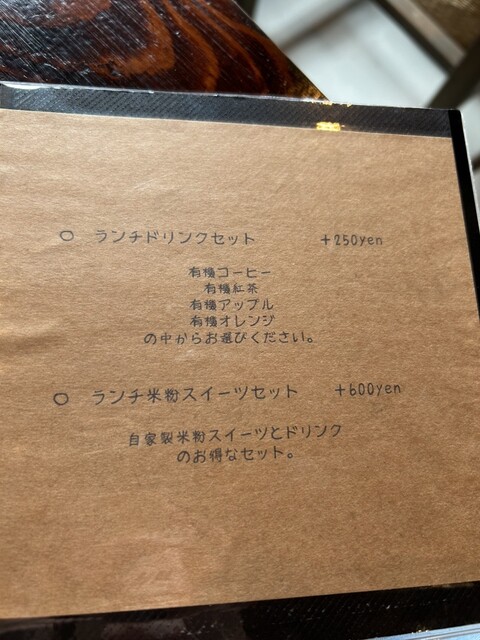 ○ ランチドリンクセット +250yen
有機コーヒー
有機紅茶
有機アップル
有機オレンジ
の中からお選びください。
○ ランチ米粉スイーツセット +600yen
自家製米粉スイーツとドリンク
のお得なセット。